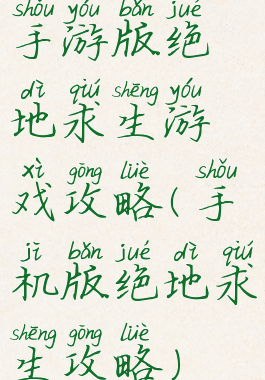 shǒu yóu bǎn jué
手游版绝
dì qiú shēng yóu
地求生游
xì gōng lüè shǒu
戏攻略(手
jī bǎn jué dì qiú
机版绝地求
shēng gōng lüè
生攻略)